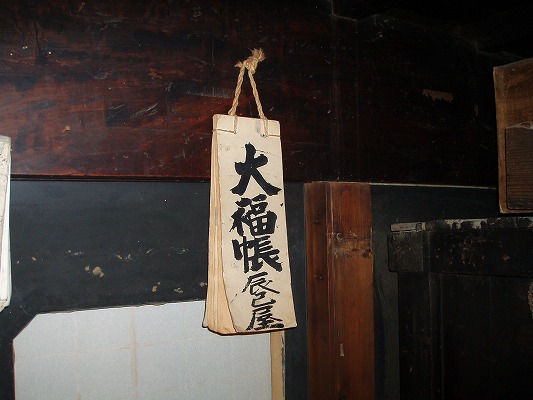 大福帳辰巳屋